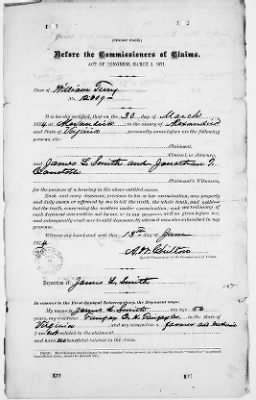 (FRONT PAGE)
Before the Commissioners of Claims.
ACT OF CONGRESS, MARCH 3, 1871.
Case of William Terry
No.
It is hereby certified, that on the 30 day of March
1874, at Alexandria in the county of Alexandria
and State of Virginia personally came before me the following
persons, viz:
Claimant,
Counsel, or Attorney,
and James L. Smith and Jonathan
Claimant's Witness,
for the purpose of a hearing in the above entitled cause.
Each and every deponent, previous to his or her examination, was properly
and duly sworn or affirmed by me to tell the truth, the whole truth, and nothing
but the truth, concerning the matters under examination; and the testimony of
each deponent was written out by me, or in my presence and as given before me,
and subsequently read over to said deponent, by whom it was also signed in my
presence.
Witness my hand and seal this 13th day of June
1874
Chilton
Special Commissioner of the Commissioners of Claims.
Deposition of James L. Smith
In answer to the First General Interrogatory, the Deponent says:
My name is James L. Smith, my age 56
years, my residence Fairfax C. H. Fairfax Co., in the State of
Virginia and my occupation a farmer and
I am not related to the claimant,
and have no beneficial interest in the claim.